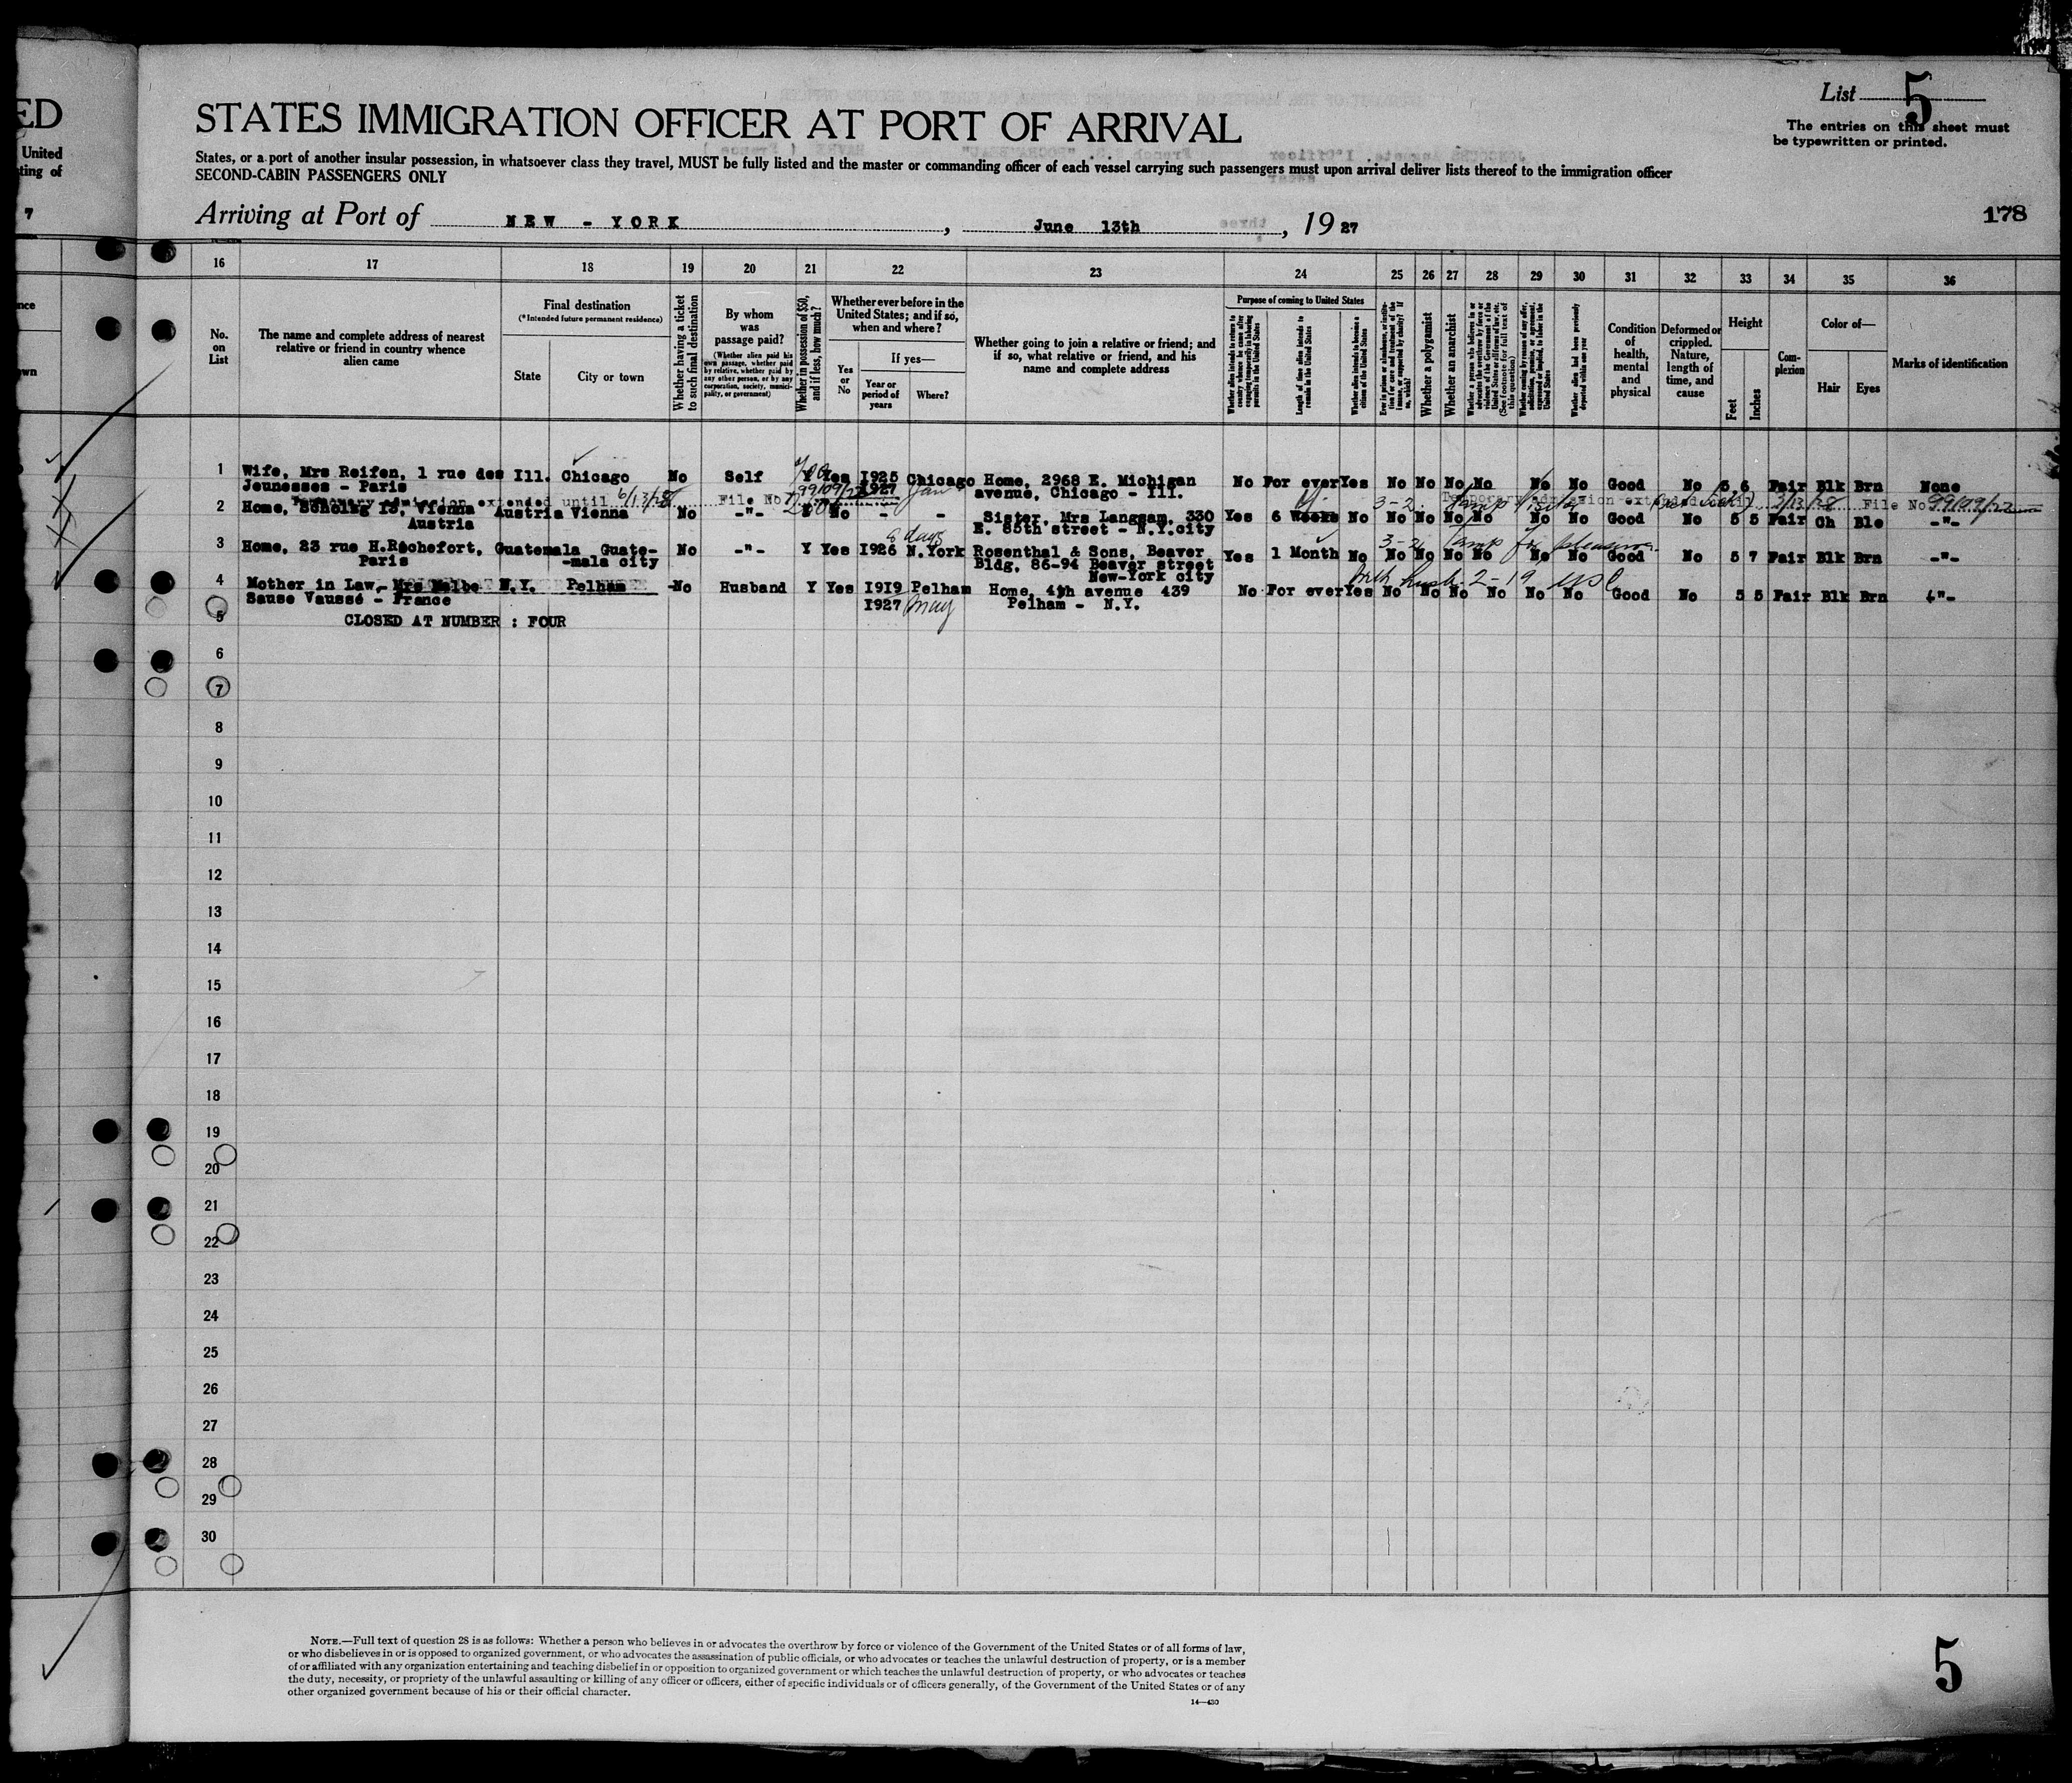 ED
United
ting of
7
nce
own
List 5
STATES IMMIGRATION OFFICER AT PORT OF ARRIVAL
The entries on this sheet must
be typewritten or printed.
States, or a port of another insular possession, in whatsoever class they travel, MUST be fully listed and the master or commanding officer of each vessel carrying such passengers must upon arrival deliver lists thereof to the immigration officer
SECOND-CABIN PASSENGERS ONLY
178
Arriving at Port of NEW - YORK, June 13th, 1927
16 17 18 19 20 21 22 23 24 25 26 27 28 29 30 31 32 33 34 35 36
No. on List
The name and complete address of nearest relative or friend in country whence alien came
Final destination
(*Intended future permanent residence)
State
City or town
Whether having a ticket to such final destination
By whom was passage paid?
(Whether alien paid his own passage, whether paid by relative, whether paid by any other person, or by any corporation, society, municipality, or government)
Whether in possession of $50, and if less, how much?
Whether ever before in the United States; and if so, when and where?
Yes or No
If yes—
Year or period of years
Where?
Whether going to join a relative or friend; and if so, what relative or friend, and his name and complete address
Purpose of coming to United States
Length of time alien intends to remain in the United States
Whether alien intends to become a citizen of the United States
Whether a polygamist
Whether an anarchist
Whether alien had been previously deported within one year
Condition of health, mental and physical
Deformed or crippled. Nature, length of time, and cause
Height
Feet
Inches
Complexion
Color of—
Hair
Eyes
Marks of identification
1 Wife, Mrs Reifen, 1 rue des Ill. Chicago No Self Yes 1925 Chicago Home, 2968 E. Michigan No For ever Yes No No No No No No Good No 5 6 Fair Blk Brn None
Jeunesses - Paris 1927 Jan avenue, Chicago - Ill.
Temporary admission extended until 6/13/28 File No. 99109/22 3-2 Temporary admission extended until 3/13/28 File No 99109/22
2 Home, Scholzg 15, Vienna Austria Vienna No -"- No - - Sister, Mrs Langsam, 330 Yes 6 Weeks No No No No No No No Good No 5 5 Fair Ch Ble -"-
Austria E. 85th street - N.Y.city
8 days 3-2 Temp for pleasure
3 Home, 23 rue H.Rochefort, Guatemala Guate- No -"- Y Yes 1926 N.York Rosenthal & Sons, Beaver Yes 1 Month No No No No No No No Good No 5 7 Fair Blk Brn -"-
Paris -mala city Bldg, 86-94 Beaver street
New-York city
4 Mother in Law, Mrs Melbe N.Y. Pelham No Husband Y Yes 1919 Pelham Home, 4th avenue 439 No For ever Yes No No No No No No Good No 5 5 Fair Blk Brn -"-
Sause Vaussé - France 1927 May Pelham - N.Y.
5 CLOSED AT NUMBER : FOUR
6
7
8
9
10
11
12
13
14
15
16
17
18
19
20
21
22
23
24
25
26
27
28
29
30
NOTE.—Full text of question 28 is as follows: Whether a person who believes in or advocates the overthrow by force or violence of the Government of the United States or of all forms of law,
or who disbelieves in or is opposed to organized government, or who advocates the assassination of public officials, or who advocates or teaches the unlawful destruction of property, or is a member
of or affiliated with any organization entertaining and teaching disbelief in or opposition to organized government or which teaches the unlawful destruction of property, or who advocates or teaches
the duty, necessity, or propriety of the unlawful assaulting or killing of any officer or officers, either of specific individuals or of officers generally, of the Government of the United States or of any
other organized government because of his or their official character.
14—430
5